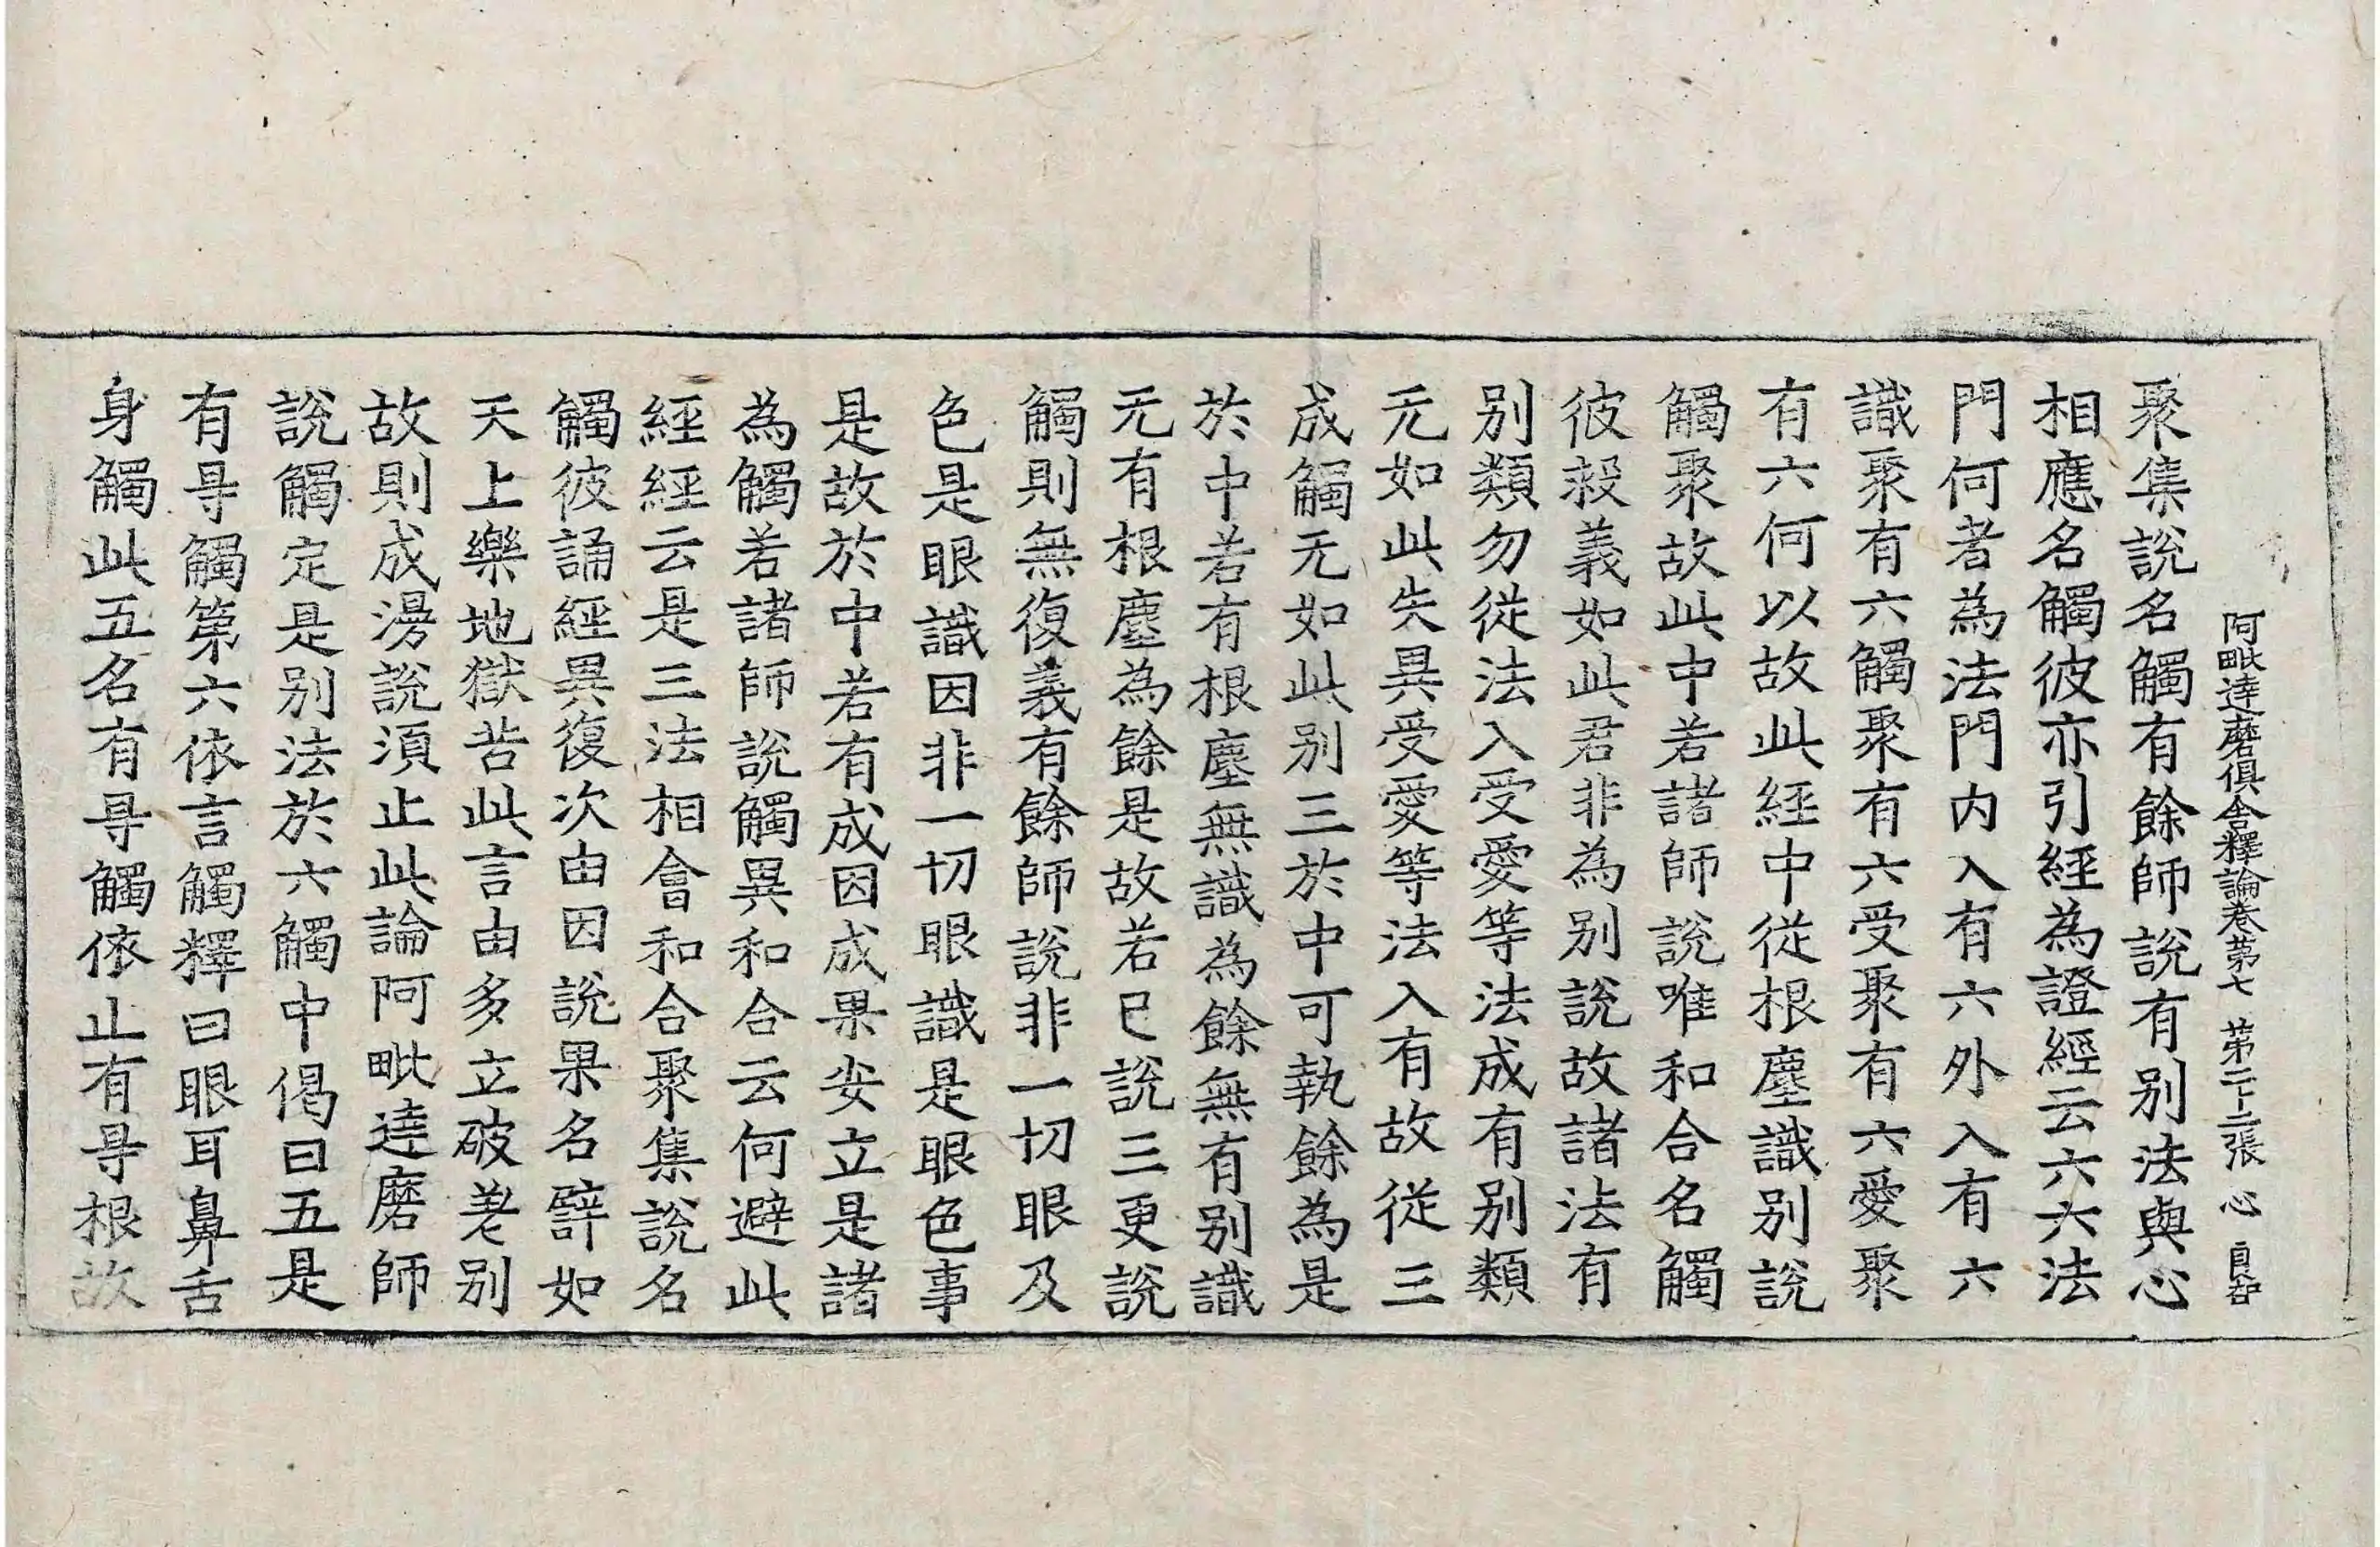 阿毗達磨俱舍釋論卷第七 第二十二張 心
聚集說名觸有餘師說有別法與心
相應名觸彼亦引經為證經云六六法
門何者為法門内入有六外入有六
識聚有六觸聚有六受聚有六愛聚
有六何以故此經中從根塵識別說
觸聚故此中若諸師說唯和合名觸
彼救義如此君非為別說故諸法有
別類勿從法入受愛等法成有別類
无如此失異受愛等法入有故從三
成觸无如此別三於中可執餘為是
於中若有根塵無識為餘無有別識
无有根塵為餘是故若已說三更說
觸則無復義有餘師說非一切眼及
色是眼識因非一切眼識是眼色事
是故於中若有成因成果安立是諸
為觸若諸師說觸異和合云何避此
經經云是三法相會和合聚集說名
觸彼誦經異復次由因說果名譬如
天上樂地獄苦此言由多立破差別
故則成漫說須止此論阿毗達磨師
說觸定是別法於六觸中偈曰五是
有㝵觸第六依言觸釋曰眼耳鼻舌
身觸此五名有㝵觸依止有㝵根故